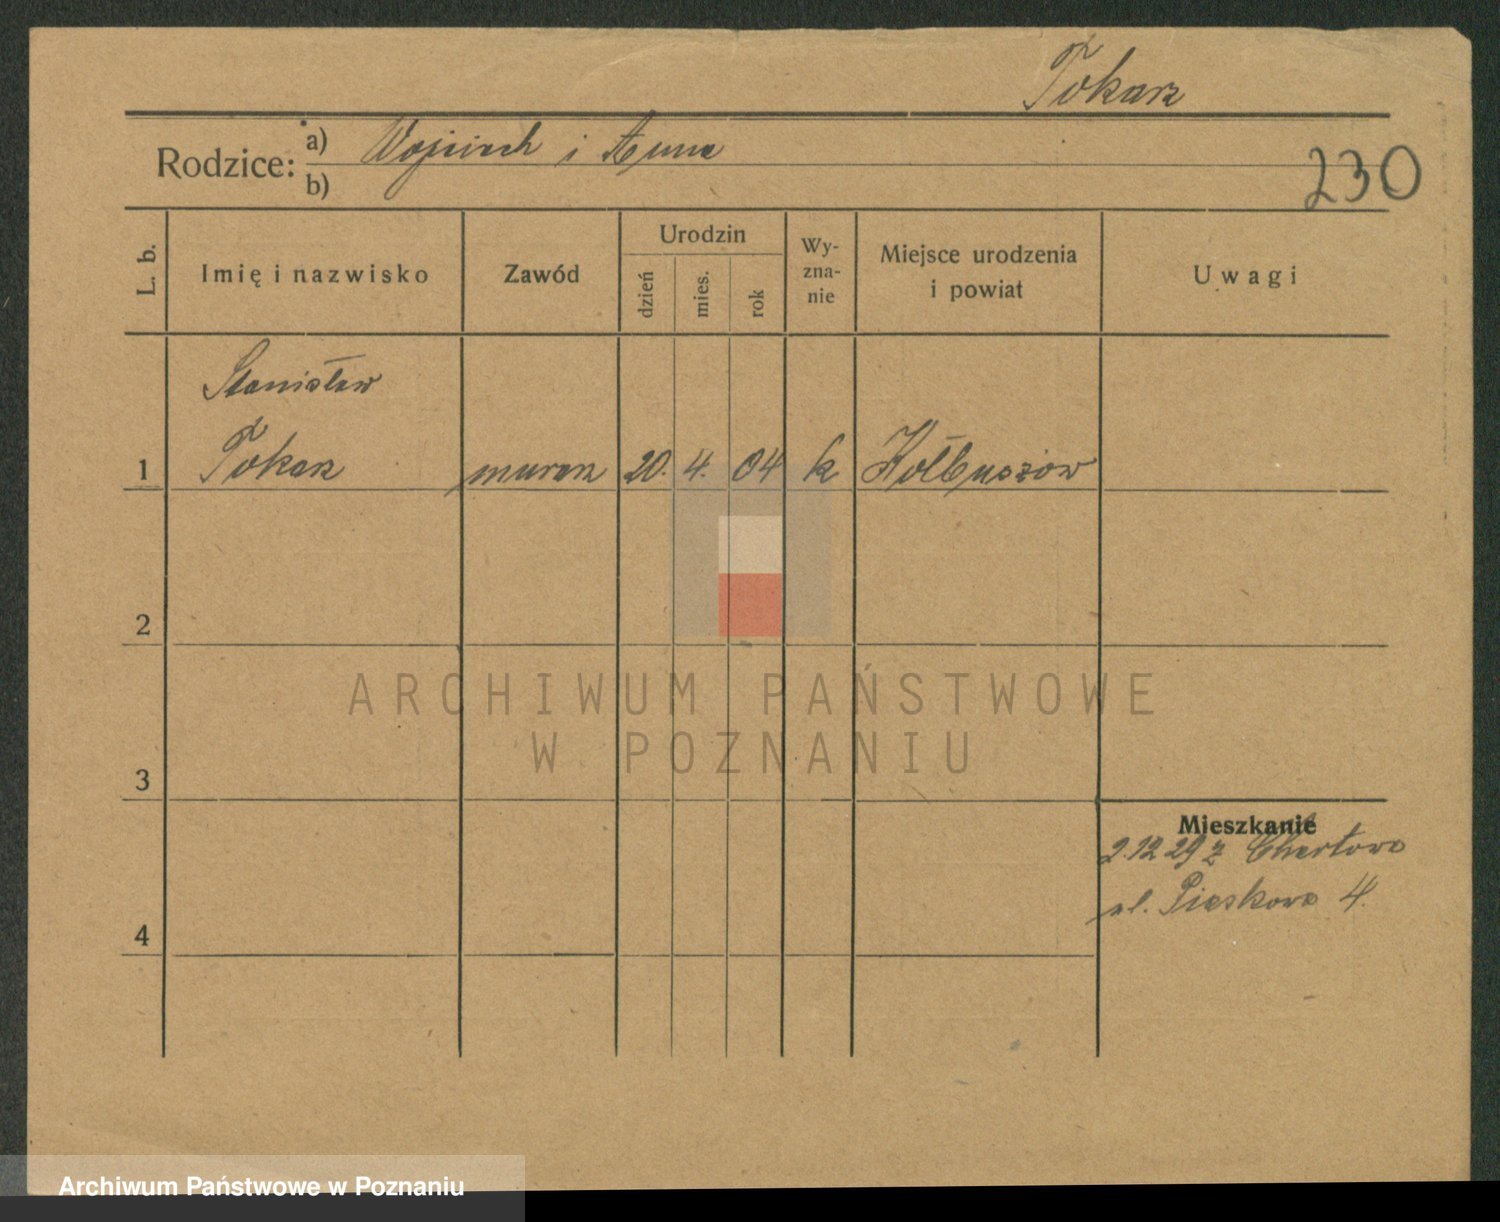 Tokarz
Rodzice: a) Wojciech i Anna
b)
230
L. b.
Imię i nazwisko
Zawód
Urodzin
dzień
mies.
rok
Wy-
zna-
nie
Miejsce urodzenia
i powiat
Uwagi
Stanisław
1 Tokarz murarz 20. 4. 04 k Kolbuszów
2
3
4
Mieszkanie
2.12 29 z Chartowo
ul. Piaskowa 4.
ARCHIWUM PAŃSTWOWE
W POZNANIU
Archiwum Państwowe w Poznaniu